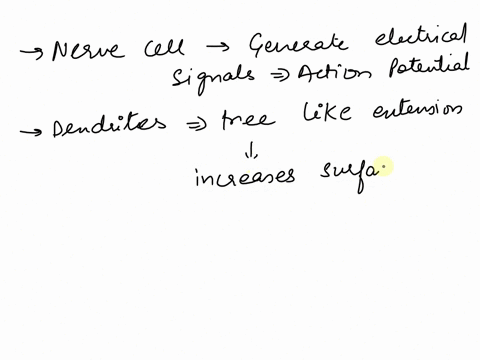 → Nerve cell → Generate electrical
signals ⇒ Action Potential
→ Dendrites ⇒ tree like extension
↓
increases surfa